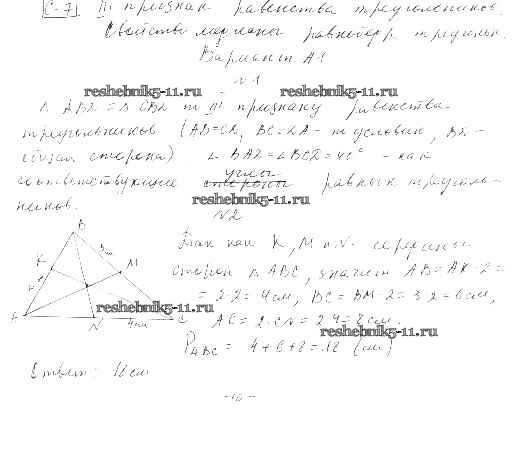 С-7 III признак равенства треугольников.
Свойство медианы равнобедр. треугольн.
Вариант А1
№1
reshebnik5-11.ru reshebnik5-11.ru
Δ ABZ = Δ CBZ по III признаку равенства
треугольников (AB=CZ, BC=ZA - по условию, BZ -
общая сторона) ∠BAZ=∠BCZ=40° - как
соответствующие углы стороны равных треуголь-
ников.
reshebnik5-11.ru
№2
B
K
M
A
N
C
3см
4см
Так как K, M и N середины
сторон Δ ABC, значит AB=AK·2=
= 2·2=4см, BC=BM·2=3·2=6см,
reshebnik5-11.ru
AC=2·CN=2·4=8см.
reshebnik5-11.ru
P ABC = 4+6+8=18 (см)
Ответ: 18см
-16-